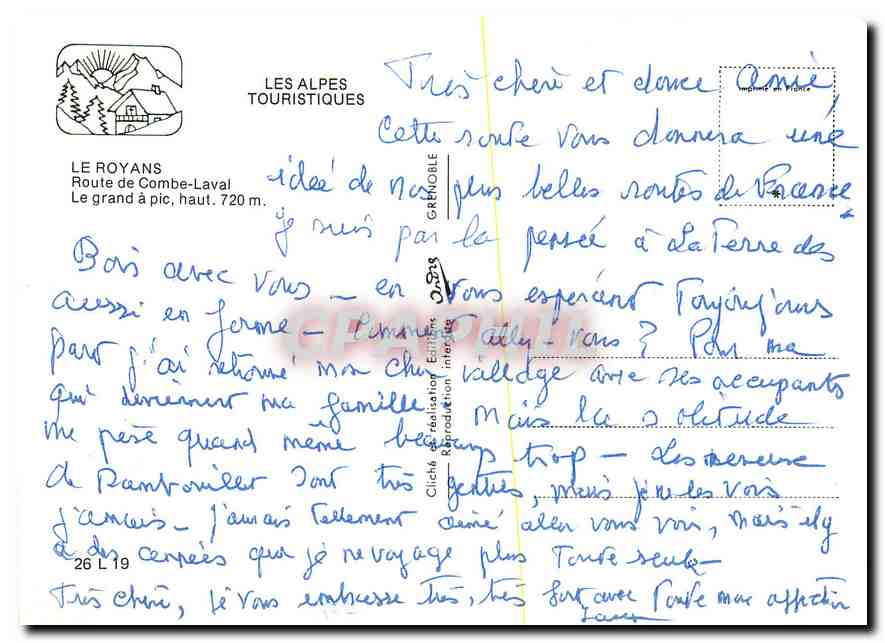 LES ALPES
TOURISTIQUES
LE ROYANS
Route de Combe-Laval
Le grand à pic, haut. 720 m.
Imprimé en France
GRENOBLE
Cliché et réalisation Editions André
Reproduction interdite
26 L 19
Très chère et douce Amie,
Cette route vous donnera une
idée de nos plus belles routes de France.
je suis par la pensée à La Terre des
Bois avec vous — en vous espérant Toujours
aussi en forme — Comment allez-vous ? Pour ma
part j'ai retrouvé mon cher village avec ses occupants
qui deviennent ma famille. Mais la solitude
me pèse quand même beaucoup trop — Les
de Rambouillet sont très gentils, mais je ne les vois
jamais — J'aurais tellement aimé aller vous voir, mais il y
a des années que je ne voyage plus Toute seule —
Très chère, je vous embrasse très, très fort avec Toute mon affection